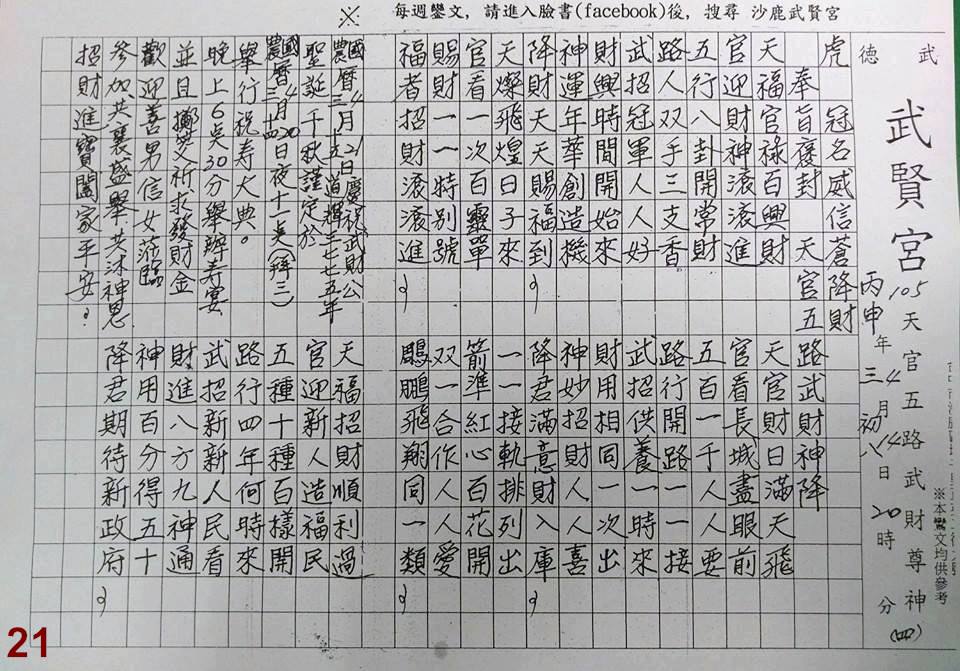 ※ 每週鑾文，請進入臉書(facebook)後，搜尋 沙鹿武賢宮
武德
武賢宮
105 天官五路武財尊神(四)
丙申年三4月初八14日20時 分
※本鸞文均供參考
虎冠名威信蒼降財
奉旨褒封 天官五路武財神降
天福官祿百興財
官迎財神滾滾進
五行八卦開常財
路人双手三支香
武招冠軍人人好
財興時間開始來
神運年華創造機
降財天天賜福到，
天燦飛煌日子來
官看一次百靈單
賜財一一特別號
福者招財滾滾進，
天官財日滿天飛
官看長城盡眼前
五百一千人人要
路行開路一一接
武招供養一時來
財用相同一次出
神妙招財人人喜
降君滿意財入庫，
一一接軌排列出
箭準紅心百花開
双一合作人人愛
鵬飛翔同一類，
國曆4月21日慶祝武財公
農曆三月十五
聖誕千秋謹定於
七七五年
國曆4月20日夜十一点(拜三)
農曆三 十四
舉行祝寿大典。
晚上6点30分舉辦寿宴
並且擲筊祈求發財金
歡迎善男信女蒞臨
參加共襄盛舉共沐神恩
招財進寶闔家平安。
天福招財順利過
官迎新人造福民
五種十種百樣開
路行四年何時來
武招新新人民看
財進八方九神通
神用百分得五十
降君期待新政府，
21